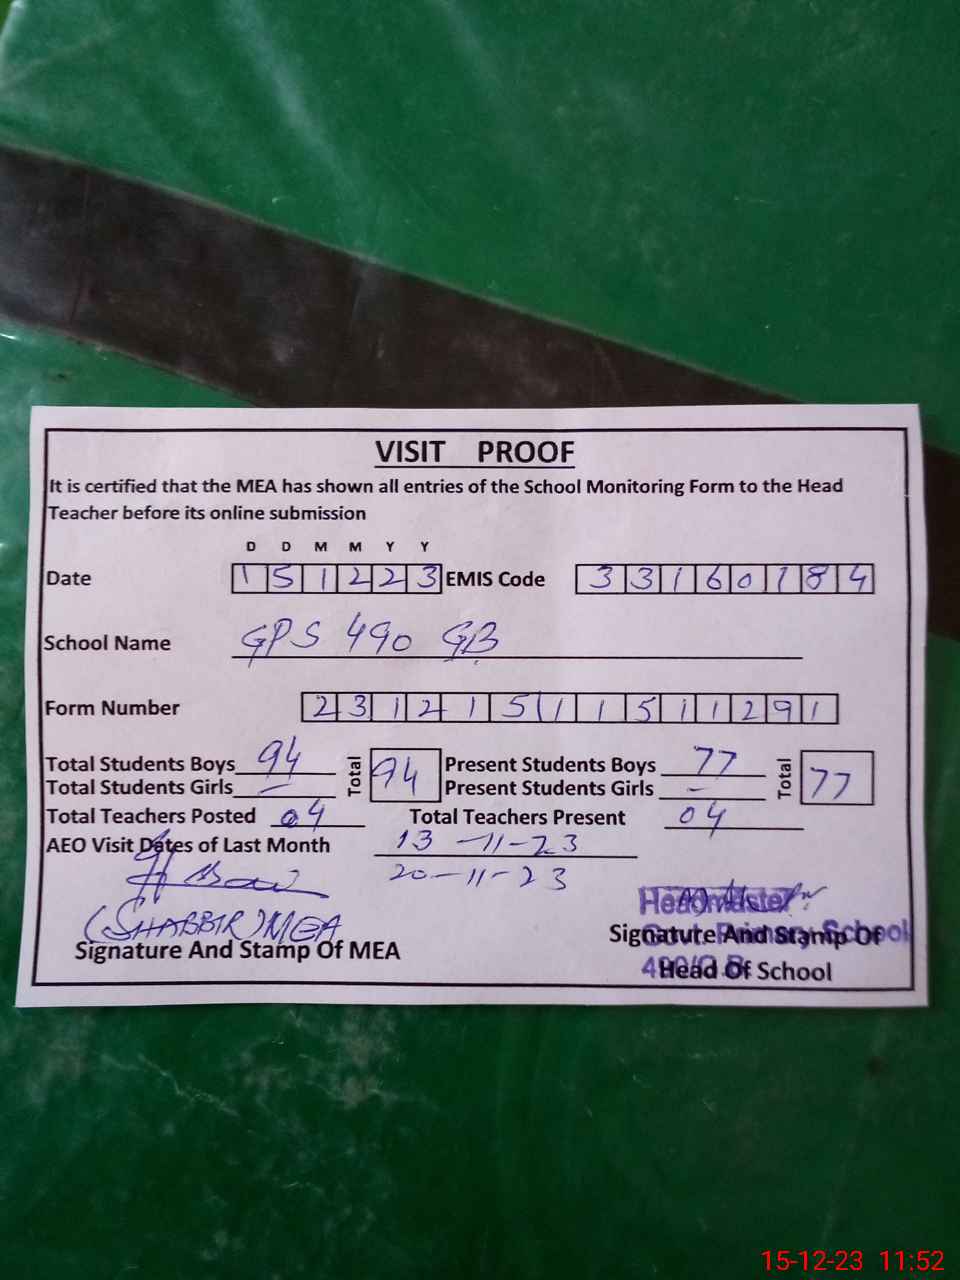 VISIT PROOF
It is certified that the MEA has shown all entries of the School Monitoring Form to the Head
Teacher before its online submission
D D M M Y Y
Date 1 5 1 2 2 3 EMIS Code 3 3 1 6 0 1 8 4
School Name GPS 490 GB
Form Number 2 3 1 2 1 5 1 1 5 1 1 2 9 1
Total Students Boys 94 Total 94 Present Students Boys 77 Total 77
Total Students Girls — Present Students Girls —
Total Teachers Posted 04 Total Teachers Present 04
AEO Visit Dates of Last Month 13-11-23
20-11-23
(SHABBIR) MEA
Signature And Stamp Of MEA
Headmaster
Govt. Primary School
490/G.B
Signature And Stamp Of
Head Of School
15-12-23 11:52